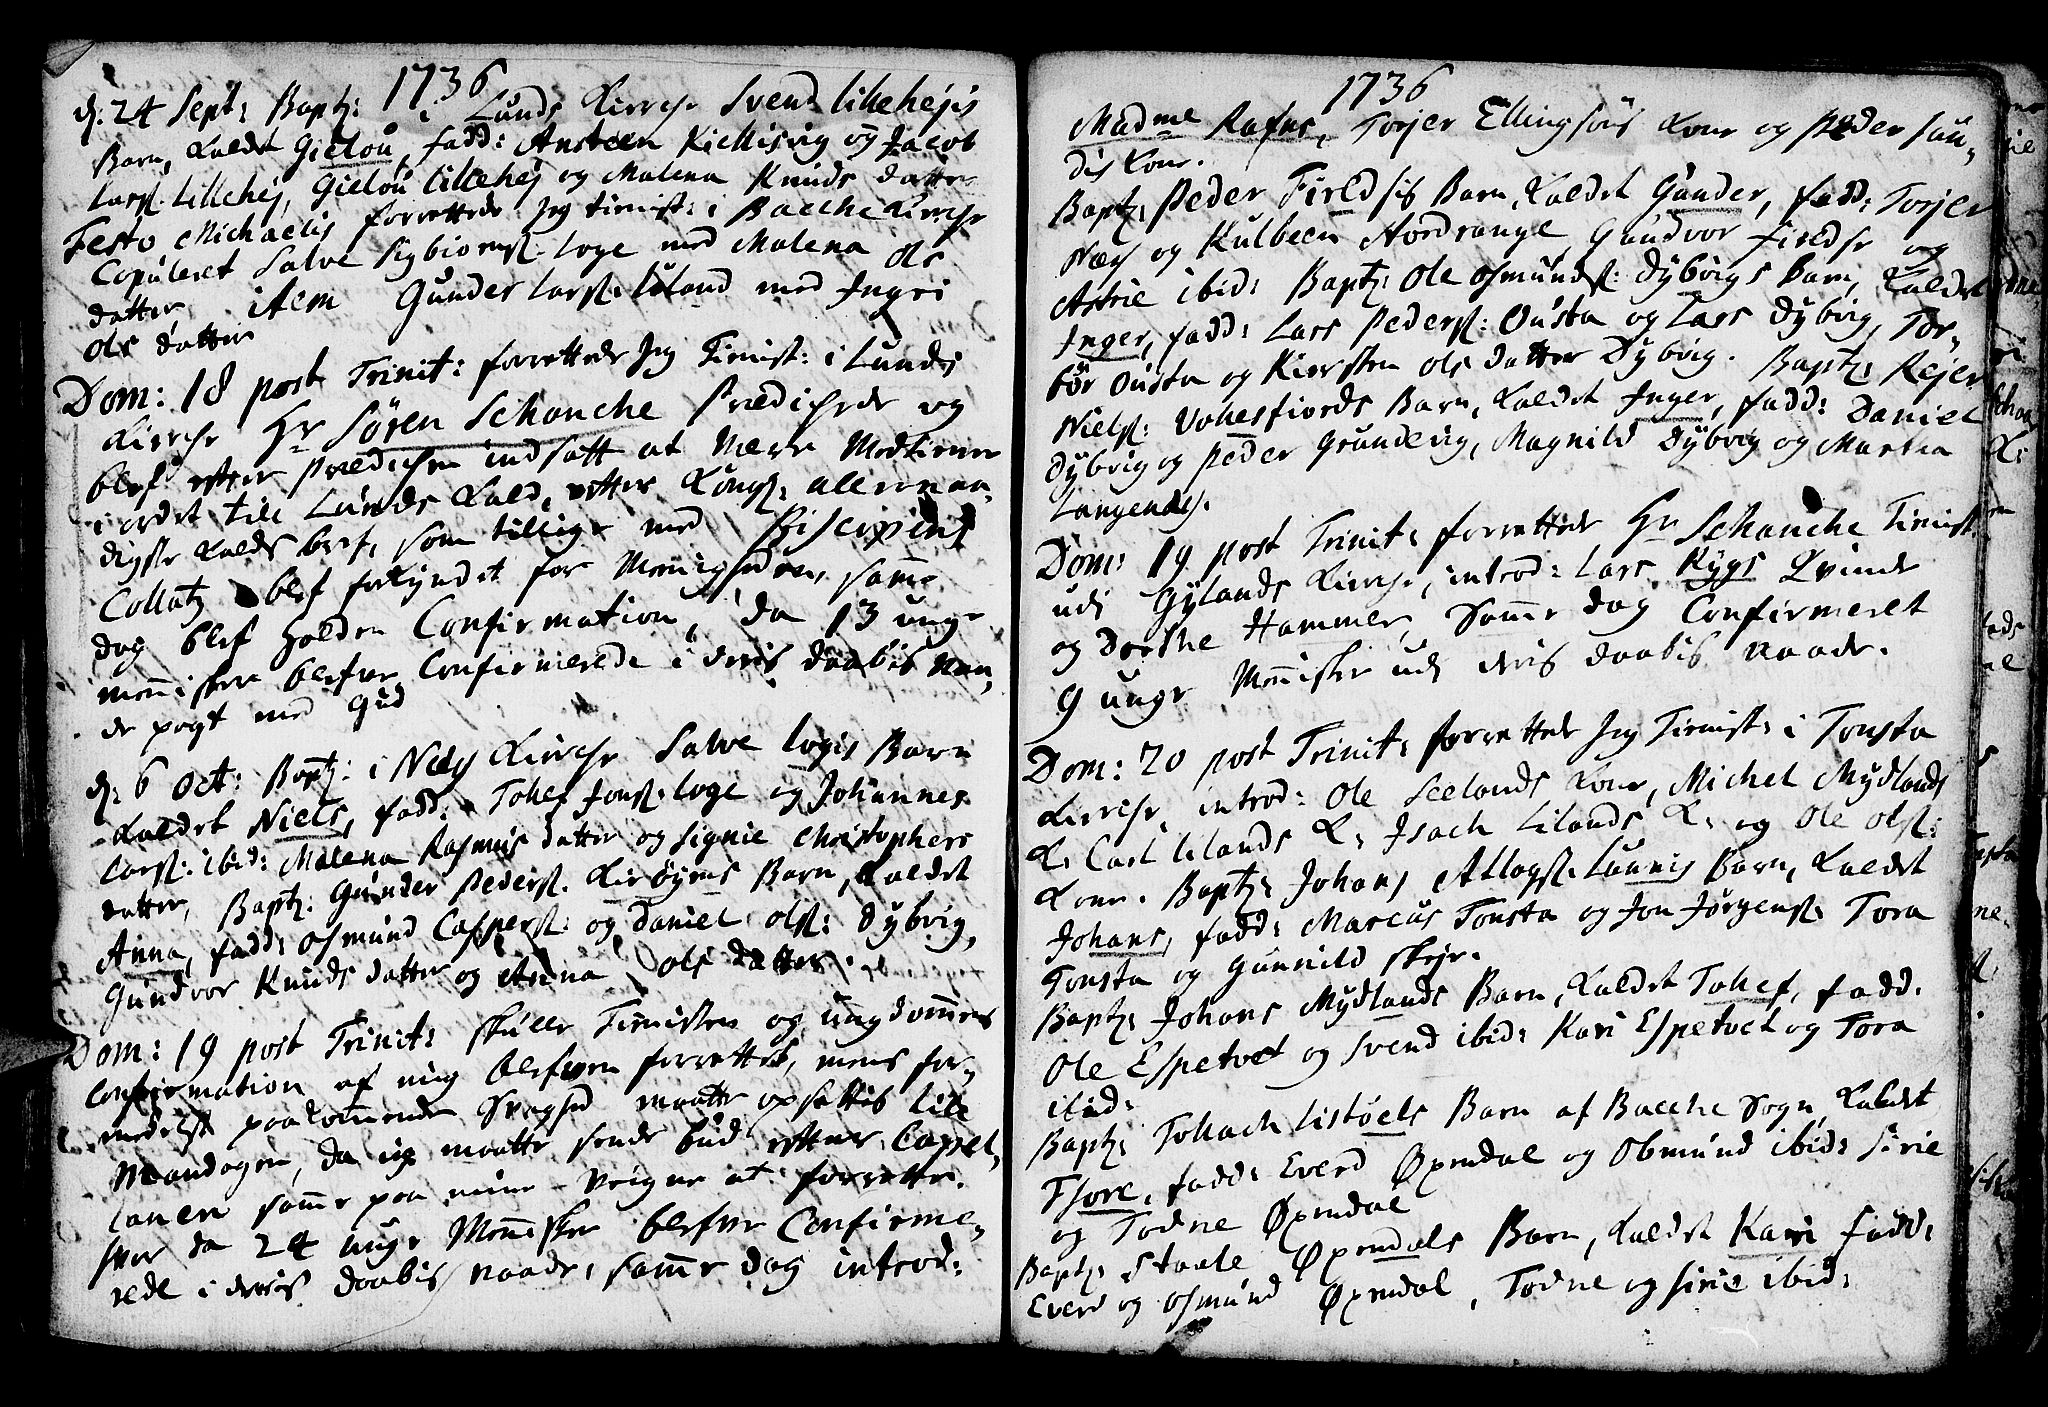 1736
d: 24 Sept: Bapt: i Lunds Kirche Svend Lillehejs
Barn, kaldet Gielou, fadd: Ansteen Kiellisvig og Jacob
Larss: Lillehej, Gielou Lillehej og Malena Knuds datter
Festo Michaelis forrettede jeg tienist: i Bacche Kirche
Copuleret Salve Sigbiørnss: Loge med Malena Ols
datter item Gunder Larss: Liland med Ingri
Ols datter
Dom: 18 post Trinit: forrettede Jeg Tienist: i Lunds
Kirche Hr Søren Schanche Prædichede og
blef efter Prædichen indsatt at være Medtiener
i ordet till Lunds Kald, efter Kongl: allernaa-
digste Kalds bref, som tillige med Biscopens
Collatz blef forkyndet for Menigheden, samme
dag blef holden Confirmation, da 13 unge
mennisker blefve Confirmerede i deris daabis Naa-
de pagt med Gud
d: 6 Oct: Bapt: i Nees Kirche Salve Logis Barn
kaldet Niels, fadd: Tollef Jonss: Loge og Johannes
Larss: ibid: Malena Rasmus datter og Signie Christophers
datter, Bapt: Gunder Pederss: Kirøyens Barn, kaldet
Anna, fadd: Osmund Caspers: og Daniel Olss: Dybvig,
Gundvor Knuds datter og Anna Ols datter.
Dom: 19 post Trinit: skulle Tienisten og Ungdommens
Confirmation af mig blefven forrettet, mens for-
medelst paakommende Svaghed maatte opsættis till
Mandagen, da jeg maatte sende bud efter Capel-
lanen samme paa mine Veigne at forrette.
hvor da 24 unge Mennisker blefve Confirme-
rede i deris daabis naade, samme dag introd:
1736
Madme Rafns, Torjer Ellingsøns Kone og Peder Sun-
dis Kone.
Bapt: Peder Firedsis Barn, kaldet Gunder, fadd: Torjer
Næs og Kulbeen Nordvange Gundvor Firedse og
Astrie ibid: Bapt: Ole Osmundss: Dybvigs barn, kaldet
Inger, fadd: Lars Pederss: Ousta og Lars Dybvig, Tor-
bør Ousta og Kiersten Ols datter Dybvig. Bapt: Rejer
Nielss: Vohesfiords Barn, kaldet Inger, fadd: Daniel
Dybvig og Peder Grundevig, Magnild Dybvig og Martha
Langendss.
Dom: 19 post Trinit: forrettede Hr Schanche Tienist:
udi Gylands Kirche, introd: Lars Rygs Qvinde
og Dorthe Hammer, Samme dag Confirmeret
9 unge Mennisker udj deris daabis naade.
Dom: 20 post Trinit: forrettede Jeg Tienist: i Tonsta
Kirche, introd: Ole Seelands Kone, Michel Mydlands
K: Carl Lilands K: Isach Lilands K: og Ole Olss:
Kone. Bapt: Johans Atlogss: Launis Barn, kaldet
Johans, fadd: Marcus Tonsta og Jon Jørgenss: Tora
Tonsta og Gunnild Skeje.
Bapt: Johans Mydlands Barn, kaldet Tollef, fadd:
Ole Espetvet og Svend ibid: Kari Espetvet og Tora
ibid:
Bapt: Tollach Listøels Barn af Bacche Sogn kaldet
Thore, fadd: Everd Øxendal og Osmund ibid: Sirie
og Todne Øxendal
Bapt: Staale Øxendals Barn, kaldet Kari fadd:
Everd og Osmund Øxendal, Todne og Sirie ibid: